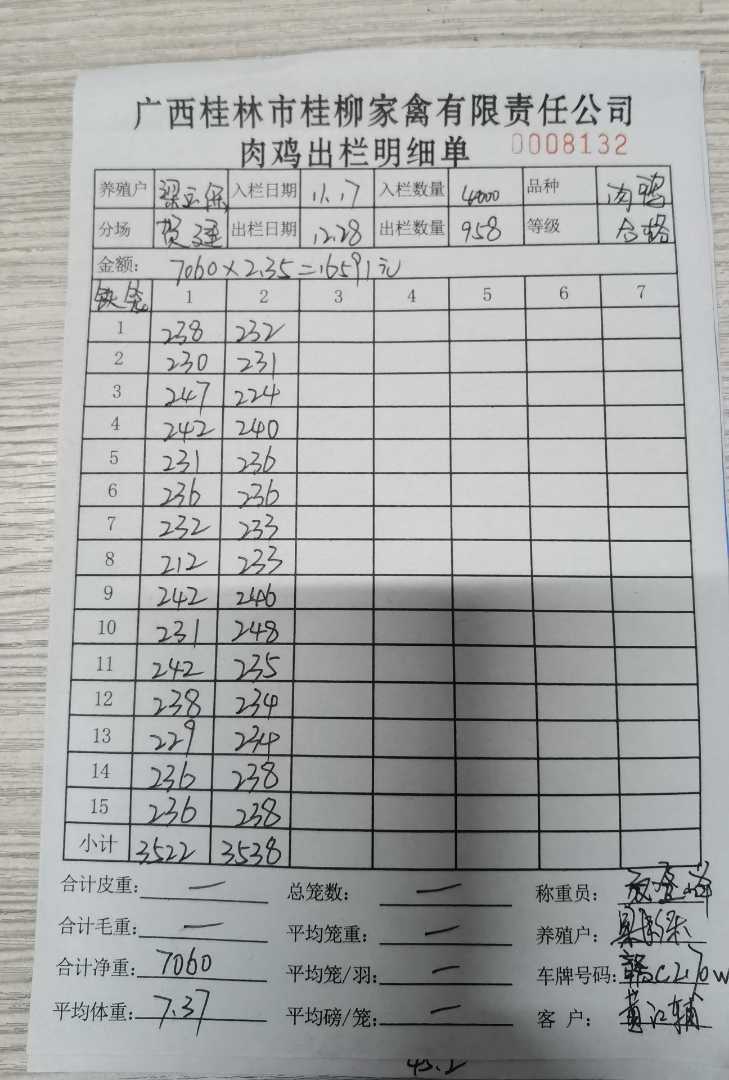 广西桂林市桂柳家禽有限责任公司
肉鸡出栏明细单 0008132
养殖户 梁 入栏日期 11.17 入栏数量 4000 品种 肉鸭
分场 贺 出栏日期 12.28 出栏数量 958 等级 合格
金额: 7060×2.35=16591元
1 2 3 4 5 6 7
1 238 232
2 230 231
3 247 224
4 242 240
5 231 236
6 236 236
7 232 233
8 212 233
9 242 246
10 231 248
11 242 235
12 238 234
13 229 234
14 236 238
15 236 238
小计 3522 3538
合计皮重: — 总笼数: — 称重员:
合计毛重: — 平均笼重: — 养殖户: 梁
合计净重: 7060 平均笼/羽: — 车牌号码: 赣C2170W
平均体重: 7.37 平均磅/笼: — 客 户: 黄江辅